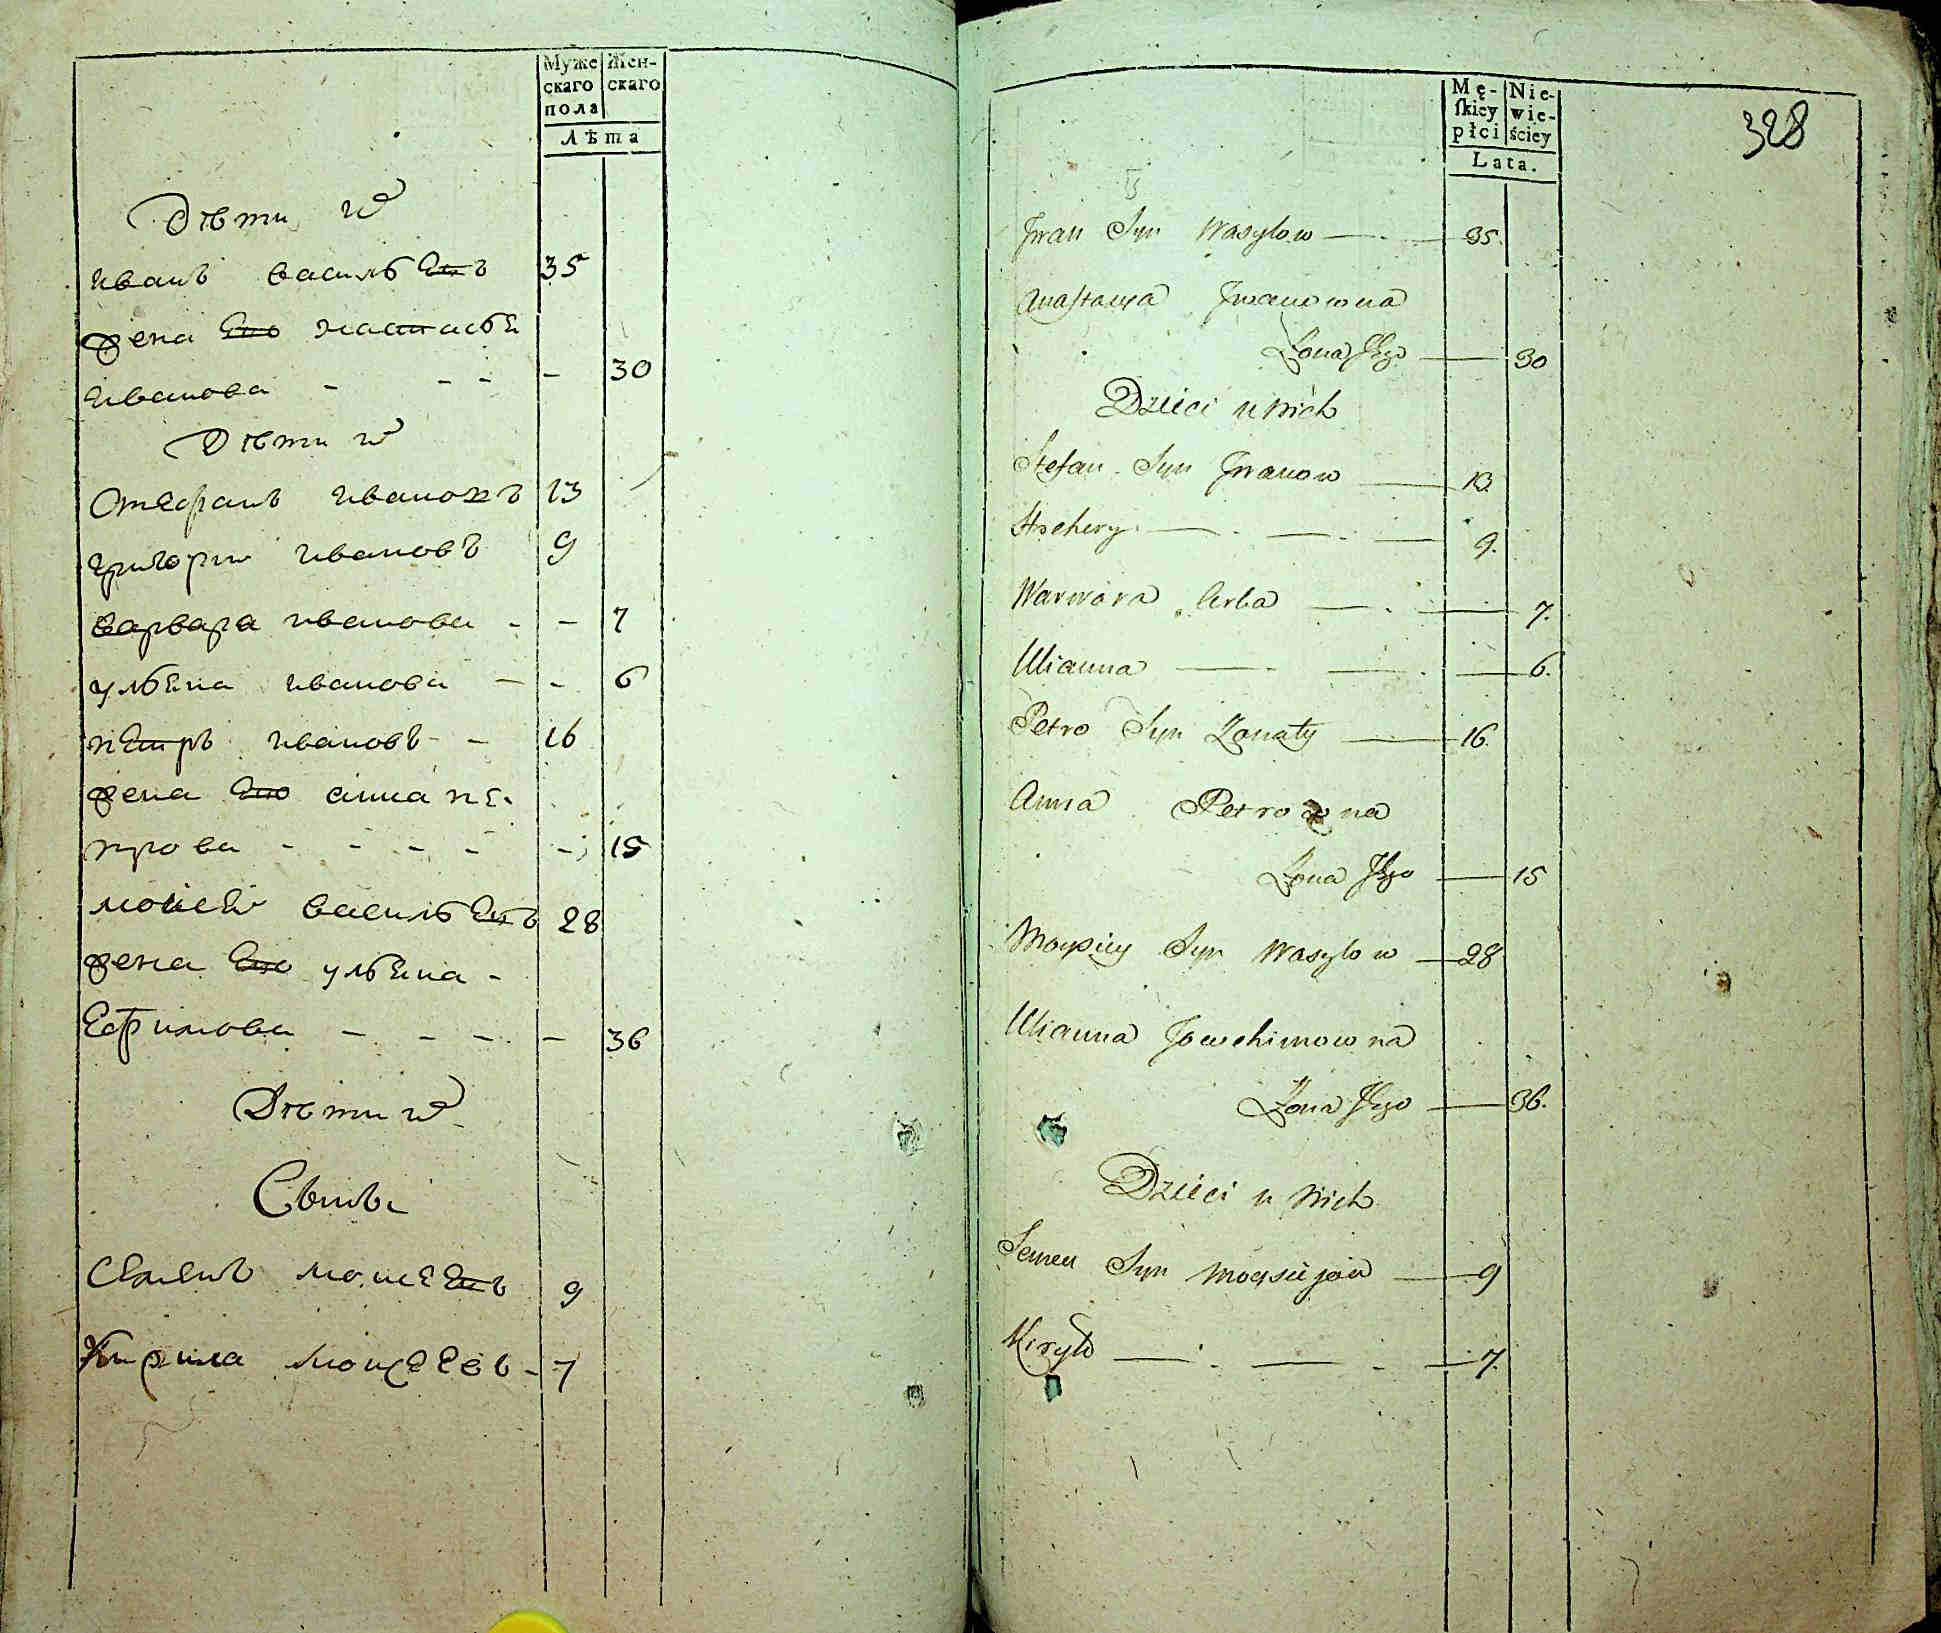 Муже
скаго
пола
Жен-
скаго
Лѣта
Дѣти их
Иванъ васильевъ 35
жена Его настасья
Иванова - - - - 30
Дѣти их
Стефанъ Ивановъ 13
григорий Ивановъ 9
варвара иванова - - 7
ульяна иванова - - 6
петръ ивановъ - - 16
жена Его анна пе-
трова - - - - - 15
моисей васильевъ 28
жена Его ульяна -
Ефимова - - - - 36
Дѣти их
Сыны
Семенъ моисеевъ 9
Кирила моисеевъ - 7
328
Mę-
ſkiey
płci
Nie-
wie-
ściey
Lata.
Jwan Syn Wasylow — 35.
Anastazya Jwanowna
Żona Jego — 30
Dzieci u nich
Stefan Syn Jwanow — 13.
— 9.
Warwara — 7.
Ulianna — 6.
Petro Syn — 16.
Anna Petrowna
Żona Jego — 15
Moysiey Syn Wasylow — 28
Ulianna Jowchimowna
Żona Jego — 36.
Dzieci u nich
Semen Syn Moysiejow — 9
Kiryło — 7.